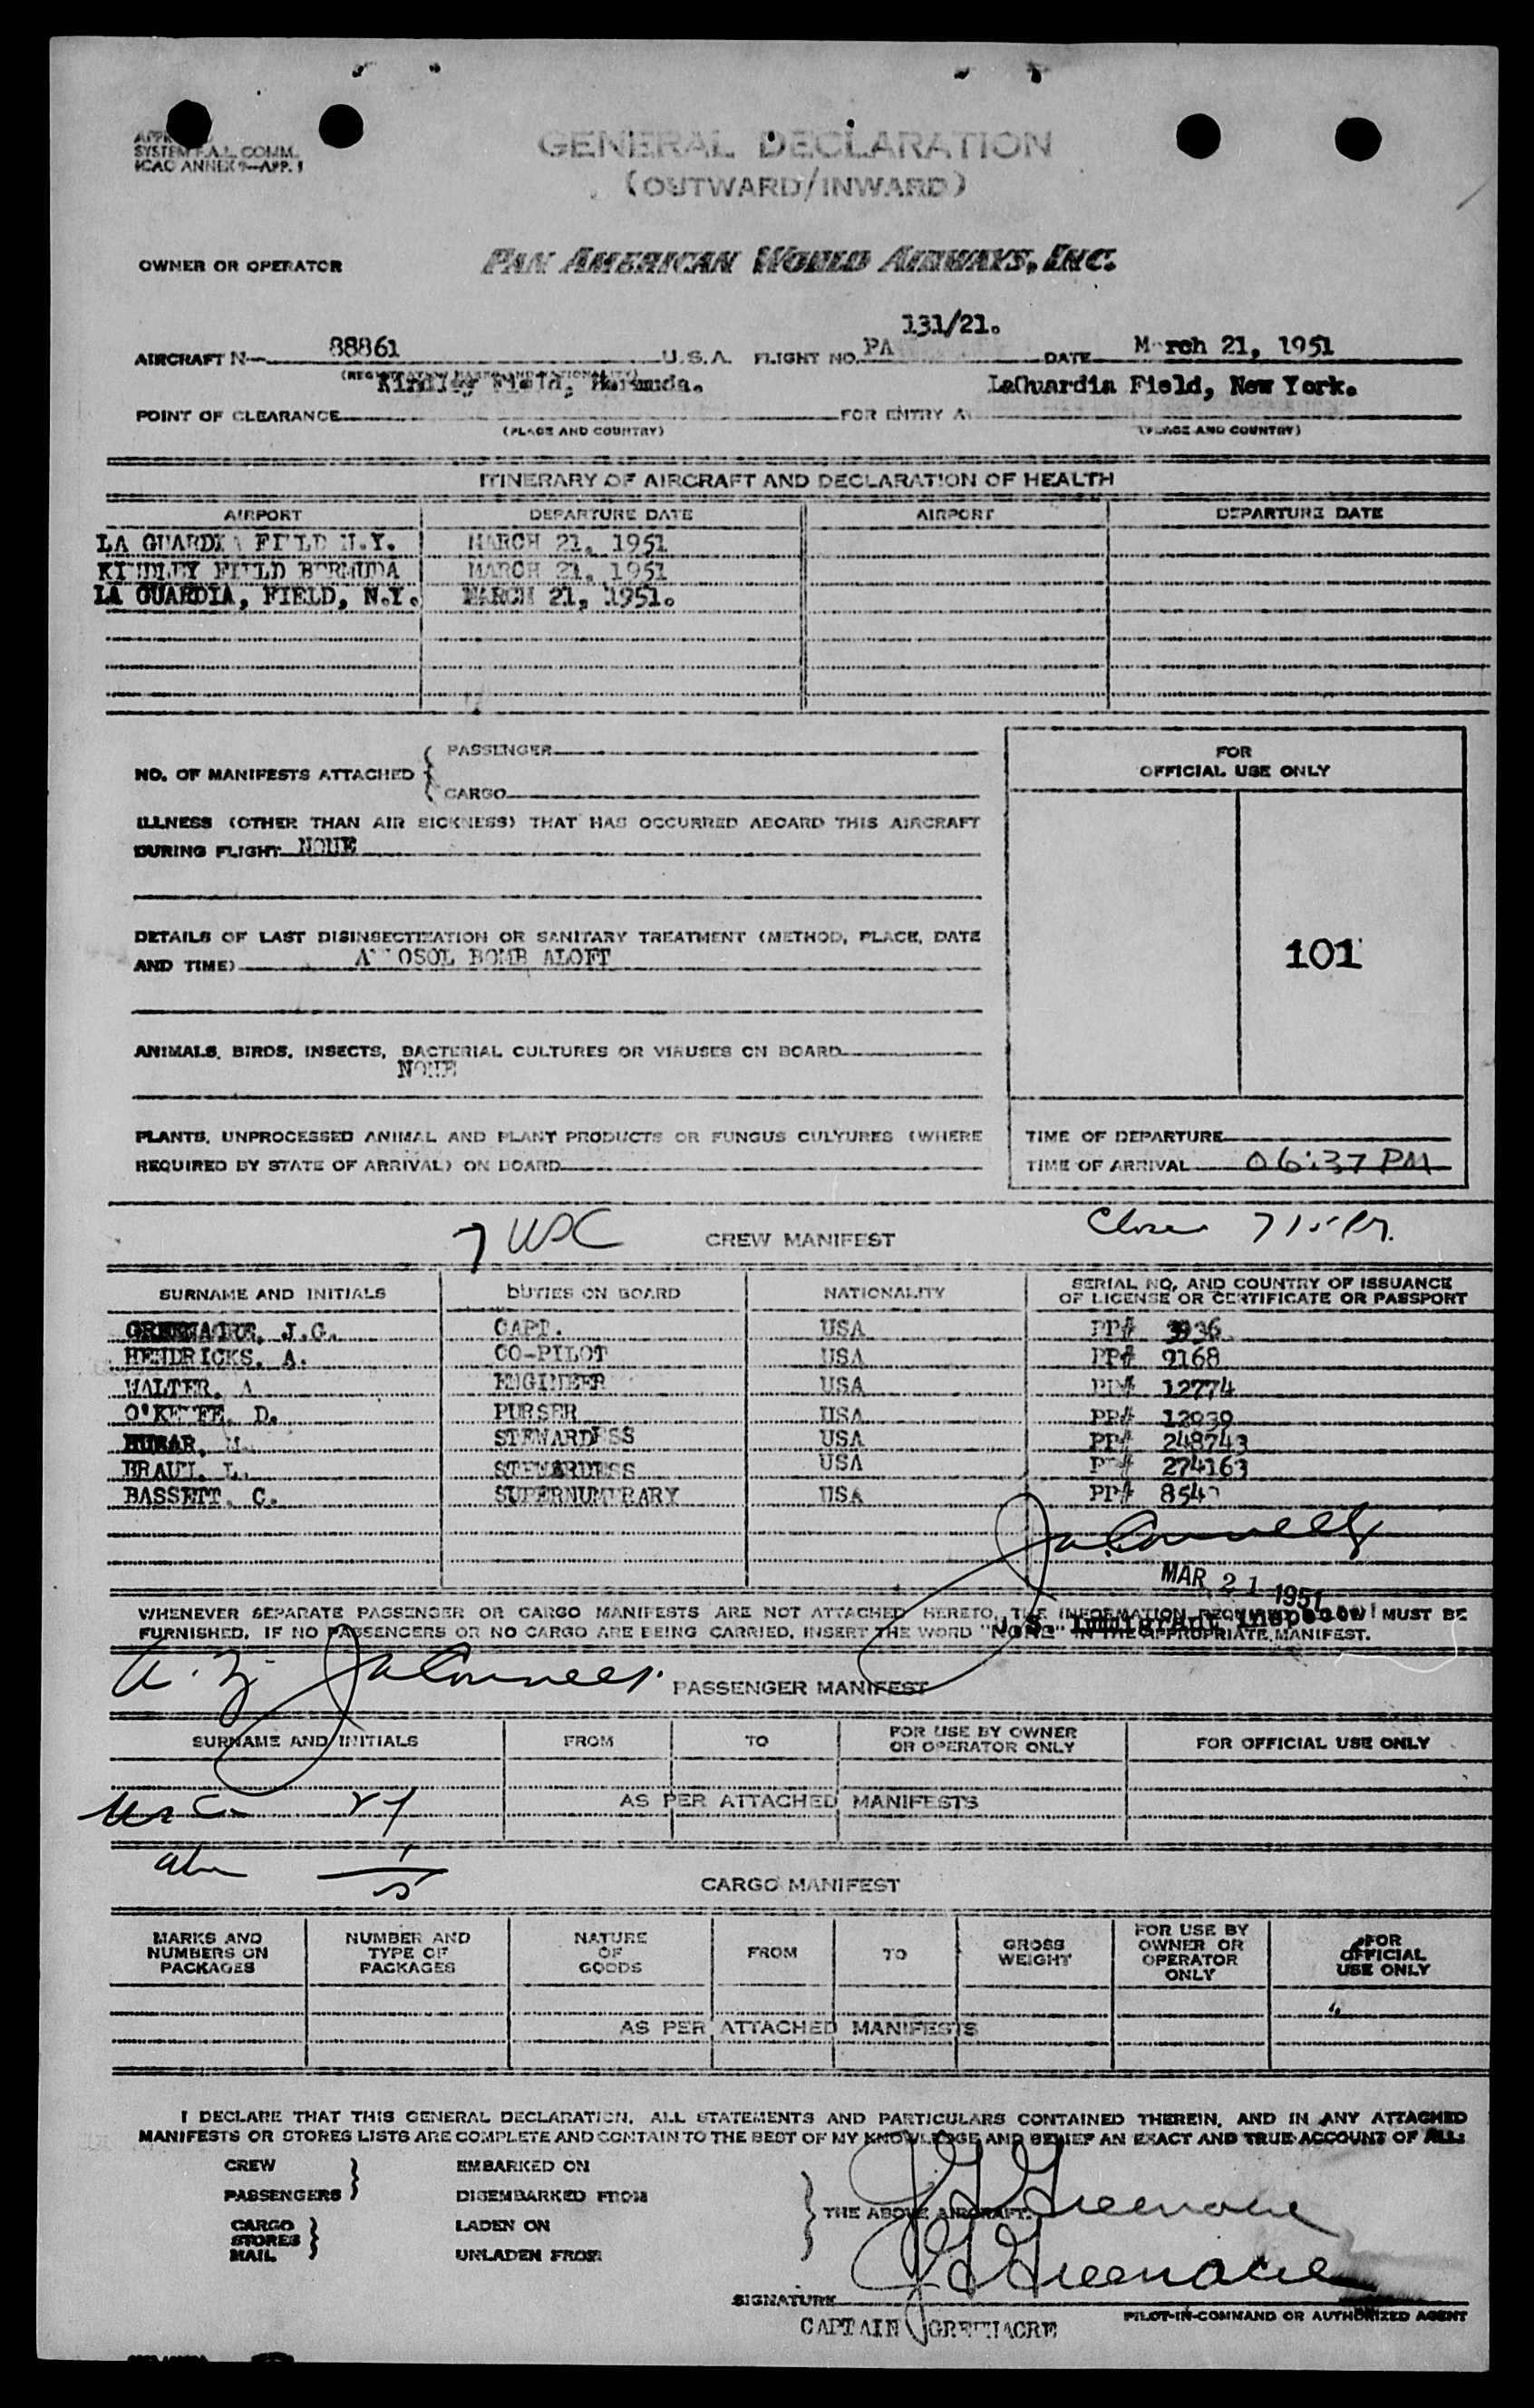 SYSTEM F.A.L. COMM.
ICAO ANNEX 9—APP. 1
GENERAL DECLARATION
(OUTWARD/INWARD)
OWNER OR OPERATOR PAN AMERICAN WORLD AIRWAYS, INC.
131/21.
AIRCRAFT N— 88861 U.S.A. FLIGHT NO. PA DATE March 21, 1951
Kindley Field, Bermuda. LaGuardia Field, New York.
POINT OF CLEARANCE FOR ENTRY AT
(PLACE AND COUNTRY) (PLACE AND COUNTRY)
ITINERARY OF AIRCRAFT AND DECLARATION OF HEALTH
AIRPORT DEPARTURE DATE AIRPORT DEPARTURE DATE
LA GUARDIA FIELD N.Y. MARCH 21, 1951
KINDLEY FIELD BERMUDA MARCH 21, 1951
LA GUARDIA, FIELD, N.Y. MARCH 21, 1951.
PASSENGER
NO. OF MANIFESTS ATTACHED
CARGO
FOR
OFFICIAL USE ONLY
ILLNESS (OTHER THAN AIR SICKNESS) THAT HAS OCCURRED ABOARD THIS AIRCRAFT
DURING FLIGHT NONE
DETAILS OF LAST DISINSECTIZATION OR SANITARY TREATMENT (METHOD, PLACE, DATE
AND TIME) BOMB ALOFT
101
ANIMALS, BIRDS, INSECTS, BACTERIAL CULTURES OR VIRUSES ON BOARD
NONE
PLANTS, UNPROCESSED ANIMAL AND PLANT PRODUCTS OR FUNGUS CULTURES (WHERE
REQUIRED BY STATE OF ARRIVAL) ON BOARD
TIME OF DEPARTURE
TIME OF ARRIVAL 06:37 PM
7 USC CREW MANIFEST
SURNAME AND INITIALS DUTIES ON BOARD NATIONALITY SERIAL NO. AND COUNTRY OF ISSUANCE
OF LICENSE OR CERTIFICATE OR PASSPORT
GREENACRE, J.G. CAPT. USA PP# 3936
HENDRICKS, A. CO-PILOT USA PP# 9168
WALTER, A ENGINEER USA PP# 12774
O'KEEFE, D. PURSER USA PP# 12939
M. STEWARDESS USA PP# 248743
BRAUN, L. STEWARDESS USA PP# 274163
BASSETT, C. SUPERNUMERARY USA PP#
MAR 21 1951
U.S. Immigrant Inspector
WHENEVER SEPARATE PASSENGER OR CARGO MANIFESTS ARE NOT ATTACHED HERETO, THE INFORMATION REQUIRED MUST BE
FURNISHED. IF NO PASSENGERS OR NO CARGO ARE BEING CARRIED, INSERT THE WORD "NONE" IN THE APPROPRIATE MANIFEST.
PASSENGER MANIFEST
SURNAME AND INITIALS FROM TO FOR USE BY OWNER
OR OPERATOR ONLY FOR OFFICIAL USE ONLY
AS PER ATTACHED MANIFESTS
CARGO MANIFEST
MARKS AND
NUMBERS ON
PACKAGES
NUMBER AND
TYPE OF
PACKAGES
NATURE
OF
GOODS
FROM
TO
GROSS
WEIGHT
FOR USE BY
OWNER OR
OPERATOR
ONLY
FOR
OFFICIAL
USE ONLY
AS PER ATTACHED MANIFESTS
I DECLARE THAT THIS GENERAL DECLARATION, ALL STATEMENTS AND PARTICULARS CONTAINED THEREIN, AND IN ANY ATTACHED
MANIFESTS OR STORES LISTS ARE COMPLETE AND CONTAIN TO THE BEST OF MY KNOWLEDGE AND BELIEF AN EXACT AND TRUE ACCOUNT OF ALL:
CREW EMBARKED ON
PASSENGERS DISEMBARKED FROM
THE ABOVE AIRCRAFT.
CARGO LADEN ON
STORES
MAIL UNLADEN FROM
J G Greenacre
J G Greenacre
SIGNATURE
PILOT-IN-COMMAND OR AUTHORIZED AGENT
CAPTAIN J GREENACRE